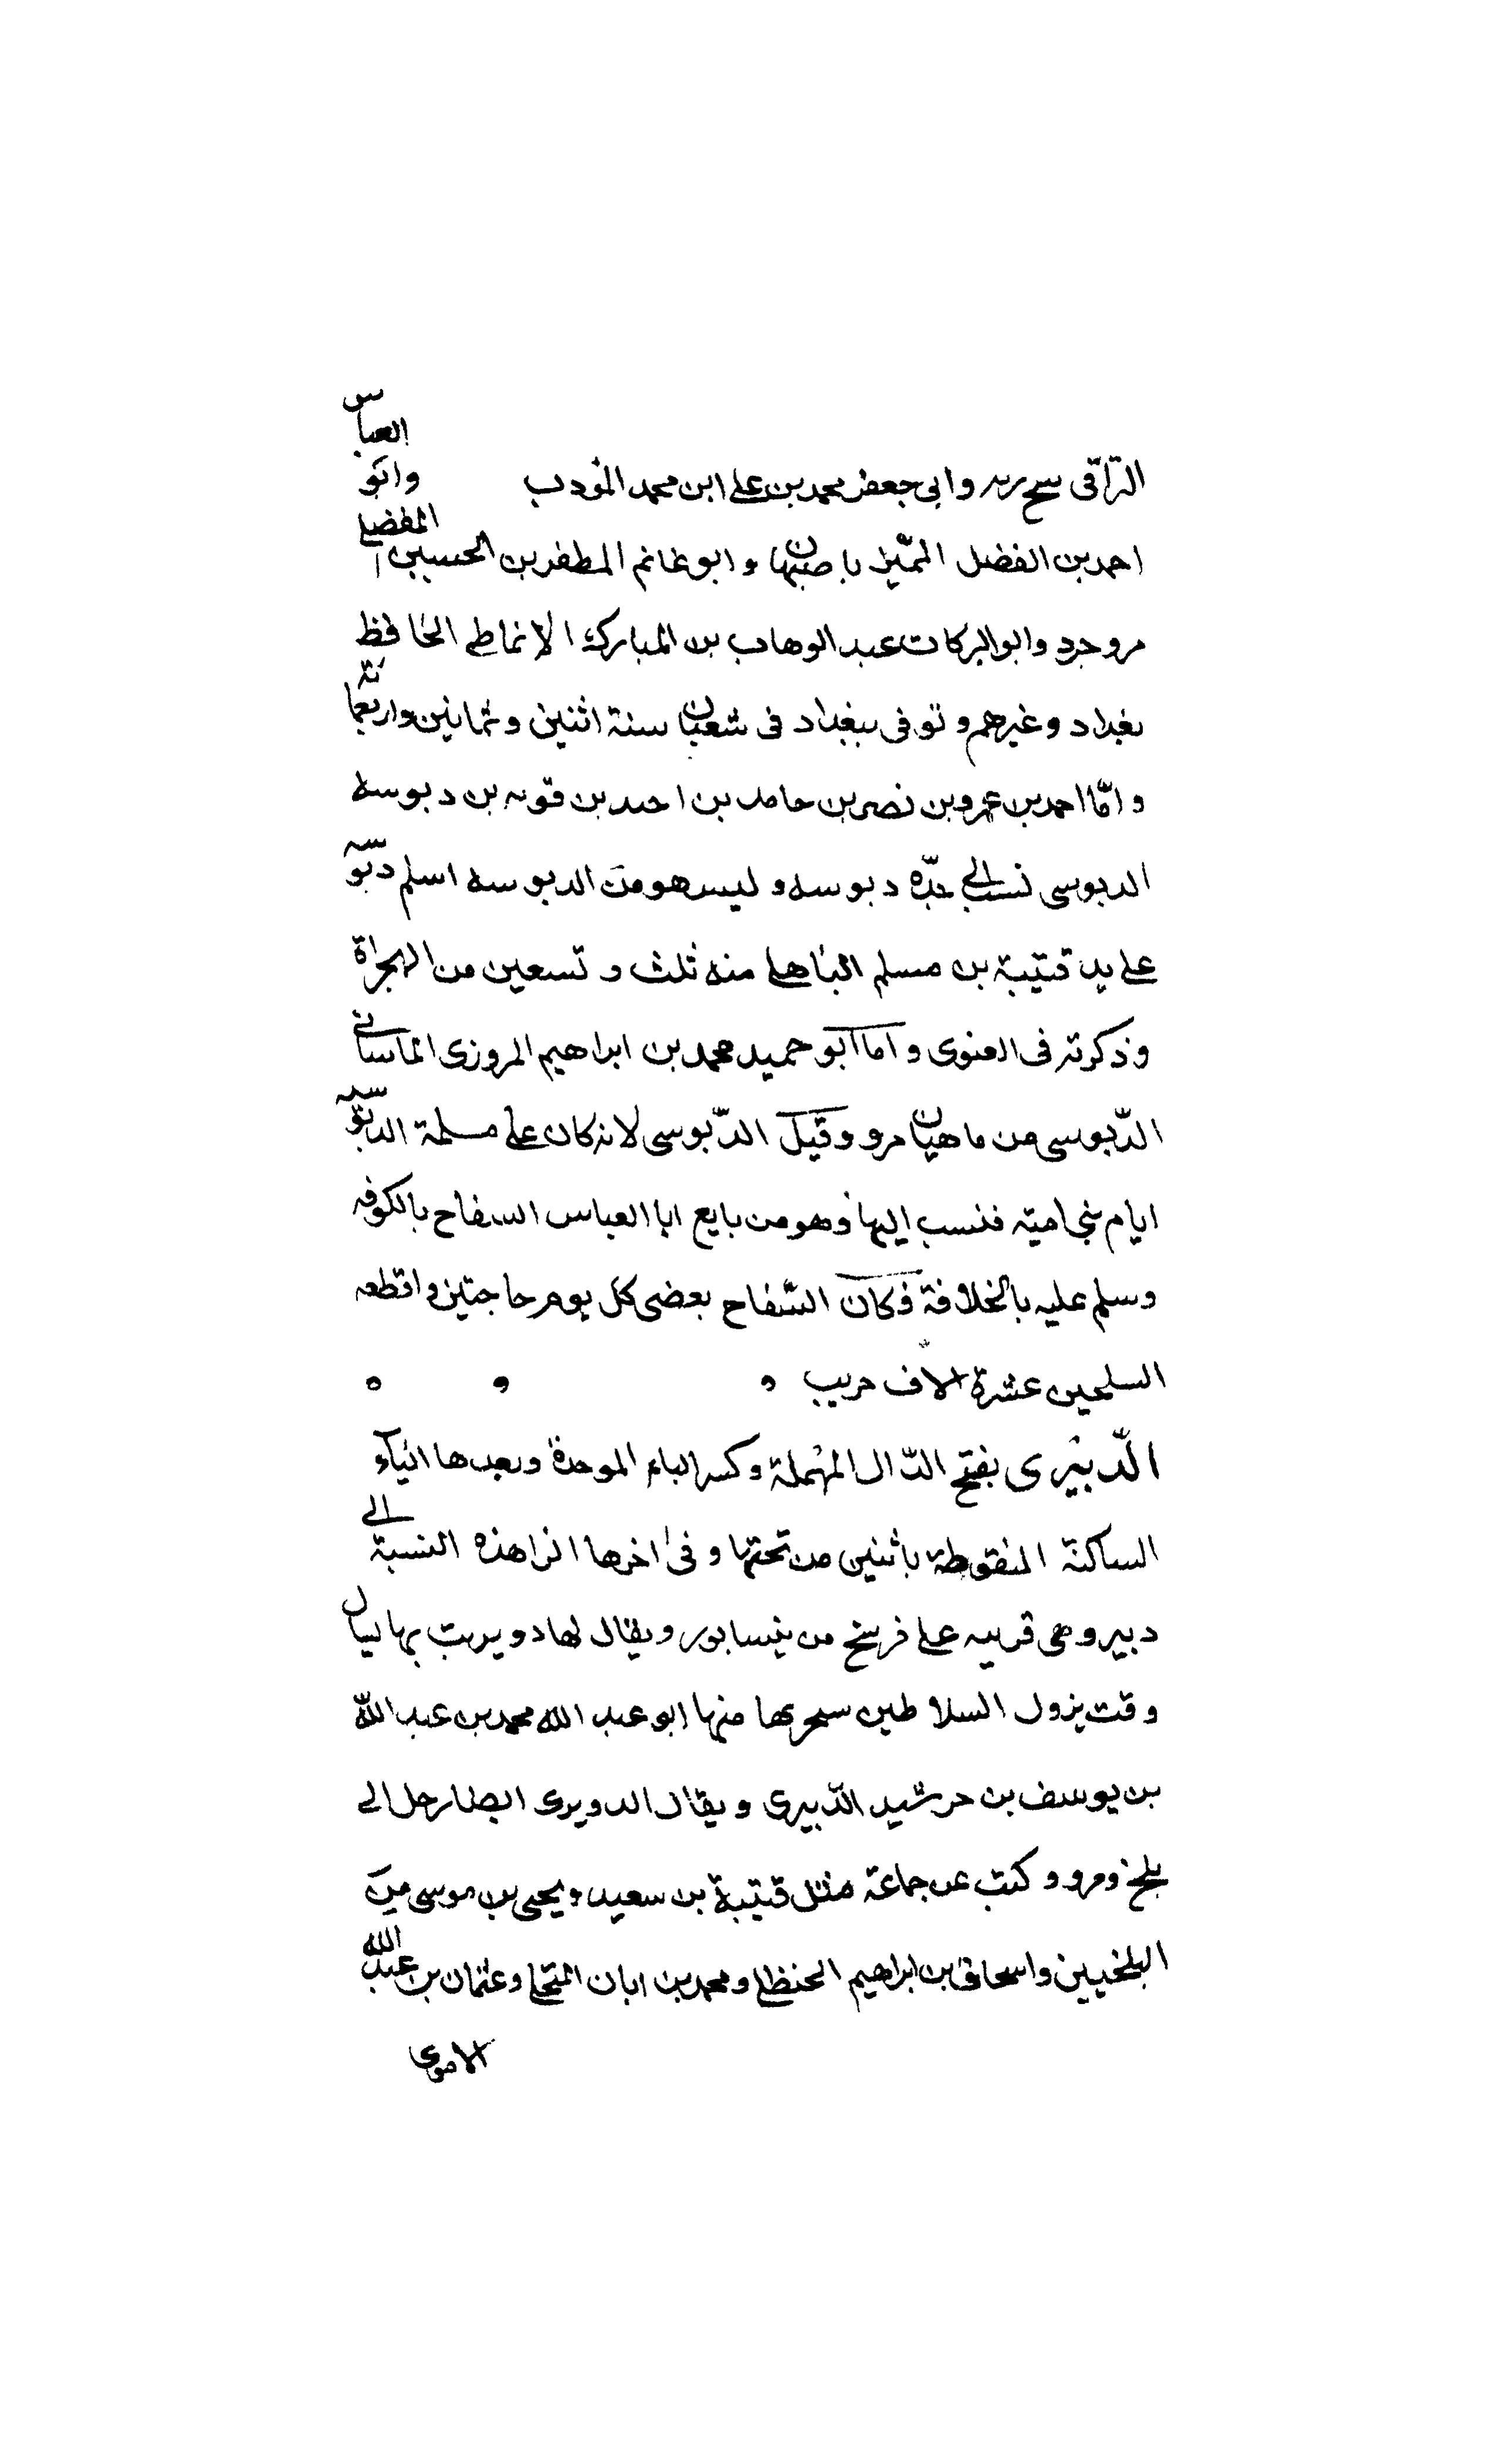 الزاقى سح وابى جعفر محمد بن على ابن محمد المؤدب وابو العباس
احمد بن الفضل المميز باصبهان وابو غانم المظفر بن الحسين المفضلى
مروجرد وابو البركات عبد الوهاب بن المبارك الانماطى الحافظ
بغداد وغيرهم وتوفى ببغداد فى شعبان سنة اثنين وثمانين واربعمائة
واما احمد بن عمرو بن نصر بن حامد بن احمد بن قويه بن دبوسه
الدبوسى نسب الى جده دبوسه وليس هو من الدبوسه اسلم دبوسه
على يد قتيبة بن مسلم الباهلى منه ثلث وتسعين من الهجراة
وذكرته فى واما ابو حميد محمد بن ابراهيم المروزى الماسانى
الدّبوسى من ماهيان مرو وقيل الدّبوسى لانه كان على مسلمة الدبوسه
ايام بنى اميه فنسب اليها وهو من بايع ابا العباس السفاح بالكوفه
وسلم عليه بالخلافة فكان السّفاح بعضى كل يوم حاجتين واقطعه
السلحين عشرة الاف حريب
الدّبيرى بفتح الدّال المهملة وكسر الباء الموحدة وبعدها الياء
الساكنة المنقوطة باثنين من تحتها وفى اخرها الرا هذه النسبة الى
دبير وهى قريه على فرسخ من نيسابور ويقال لها دوير بت بها ليال
وقت نزول السلاطين منها ابو عبد الله محمد بن عبد اللّه
بن يوسف بن خرشيد الدّبيرى ويقال الدويرى ايضا رحل الى
بلخ ومرو وكتب عن جماعة مثل قتيبة بن سعيد ويحيى بن موسى من
البلخيين واسحاق بن ابراهيم الحنظلى ومحمد بن ابان المتحلى وعثمان بن عبد الله
الاموى